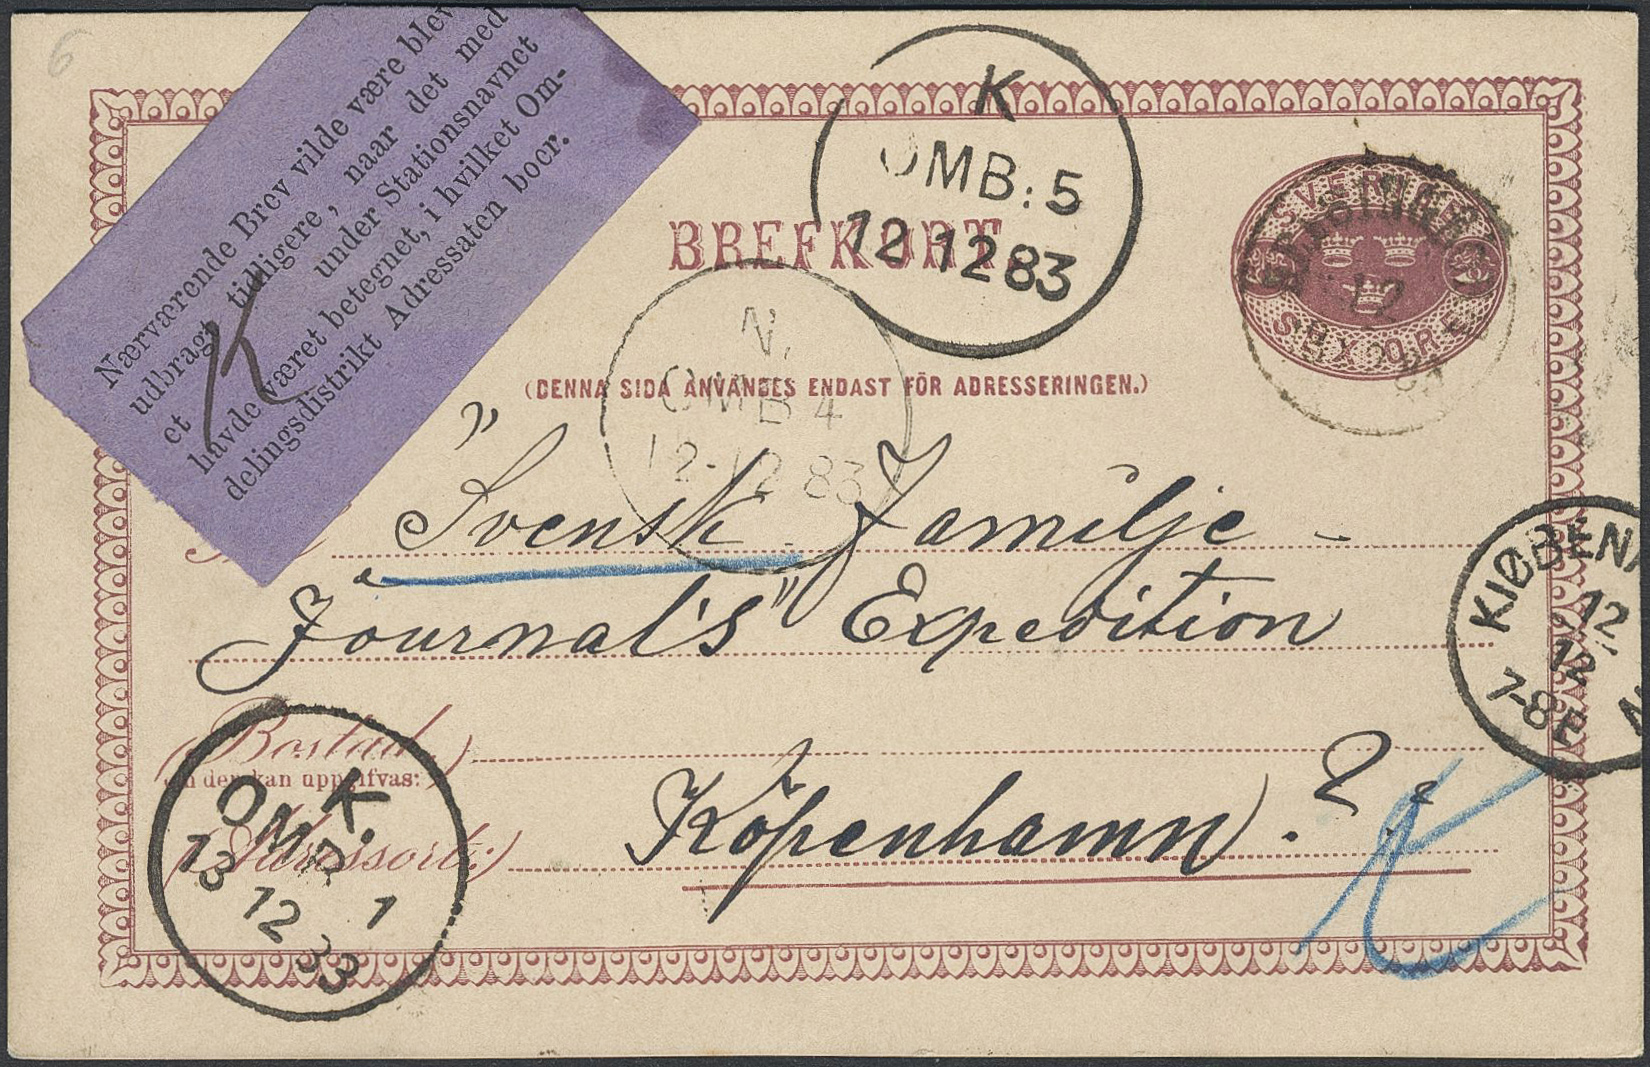 6
Nærværende Brev vilde være blev
udbragt tidligere, naar det med
et K under Stationsnavnet
havde været betegnet, i hvilket Om-
delingsdistrikt Adressaten boer.
K
OMB: 5
12 12 83
BREFKORT.
SVERIGE
SEX ÖRE
12
N.
OMB 4
12-12 83
(DENNA SIDA ANVÄNDES ENDAST FÖR ADRESSERINGEN.)
"Svensk Familje-
Journal's" Expedition
KJØBENH
12
12
7-8 E
(Bostad)
om den kan uppgifvas:
(Adressort:)
Köpenhamn.
K
K.
OMB 1
13 12 83